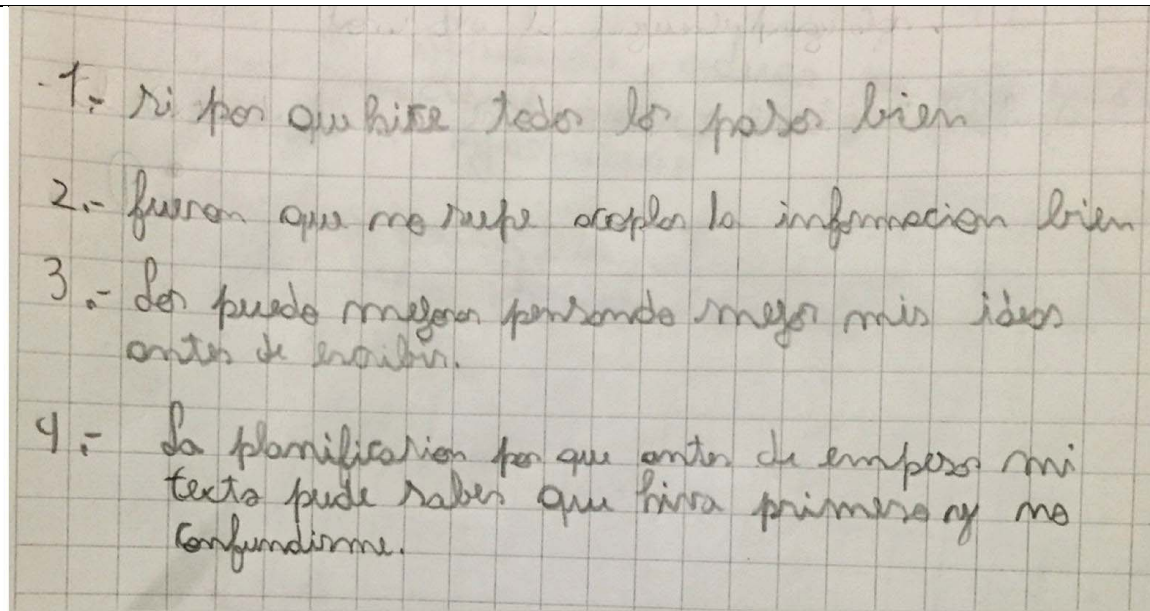 1.- si por que hice todos los pasos bien
2.- fueron que no supe acoplar la informacion bien
3.- Los puedo mejorar pensando mejor mis ideas
antes de escribir.
4.- La planificacion por que antes de empesar mi
texto pude saber que hiva primero y no
confundirme.